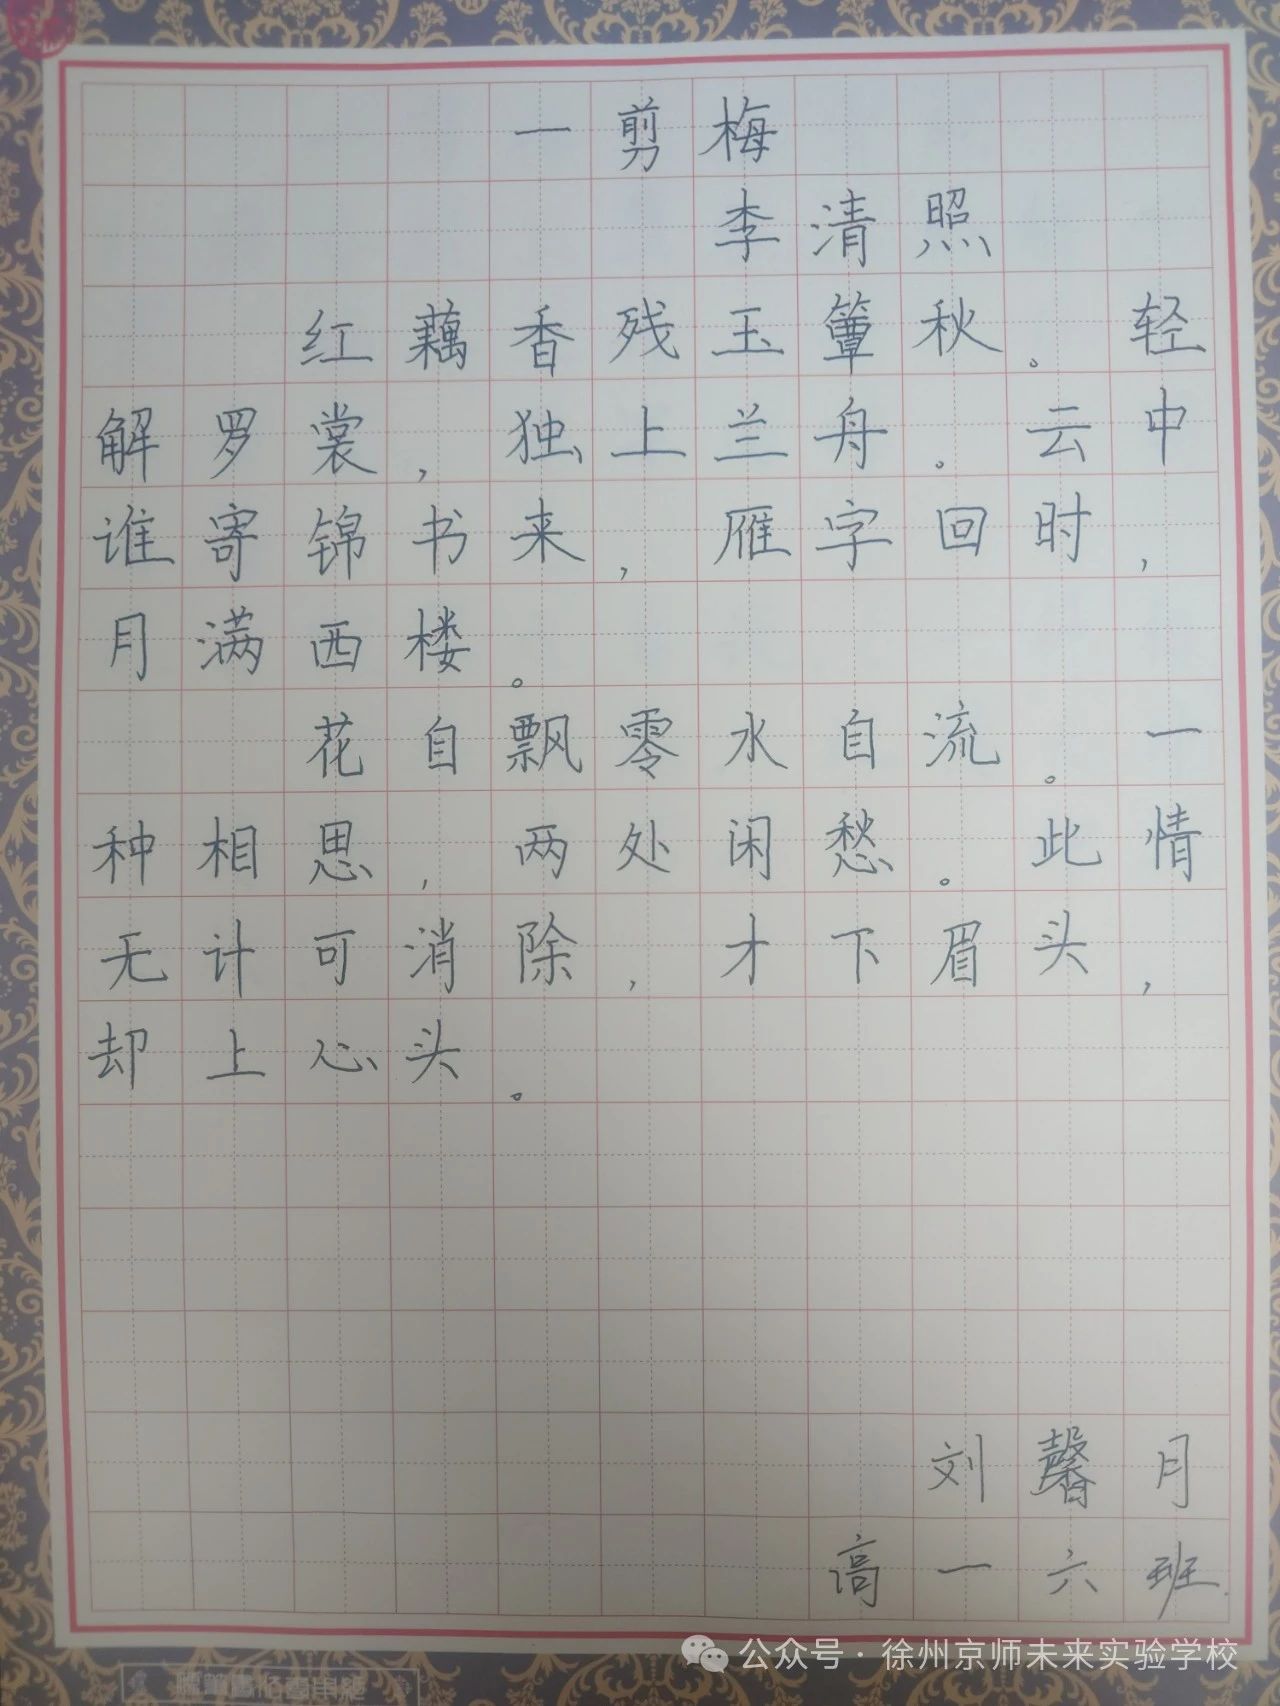 一剪梅
李清照
红藕香残玉簟秋。轻
解罗裳,独上兰舟。云中
谁寄锦书来,雁字回时,
月满西楼。
花自飘零水自流。一
种相思,两处闲愁。此情
无计可消除,才下眉头,
却上心头。
刘馨月
高一六班.
公众号·徐州京师未来实验学校